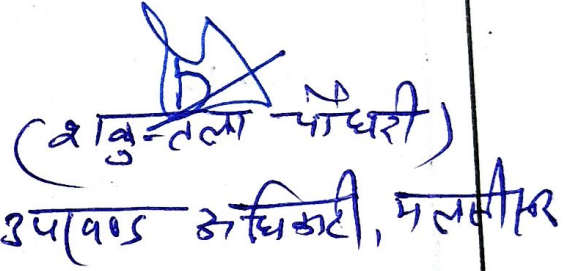 (शकुन्तला चौधरी)
उपखण्ड अधिकारी, मलसीसर